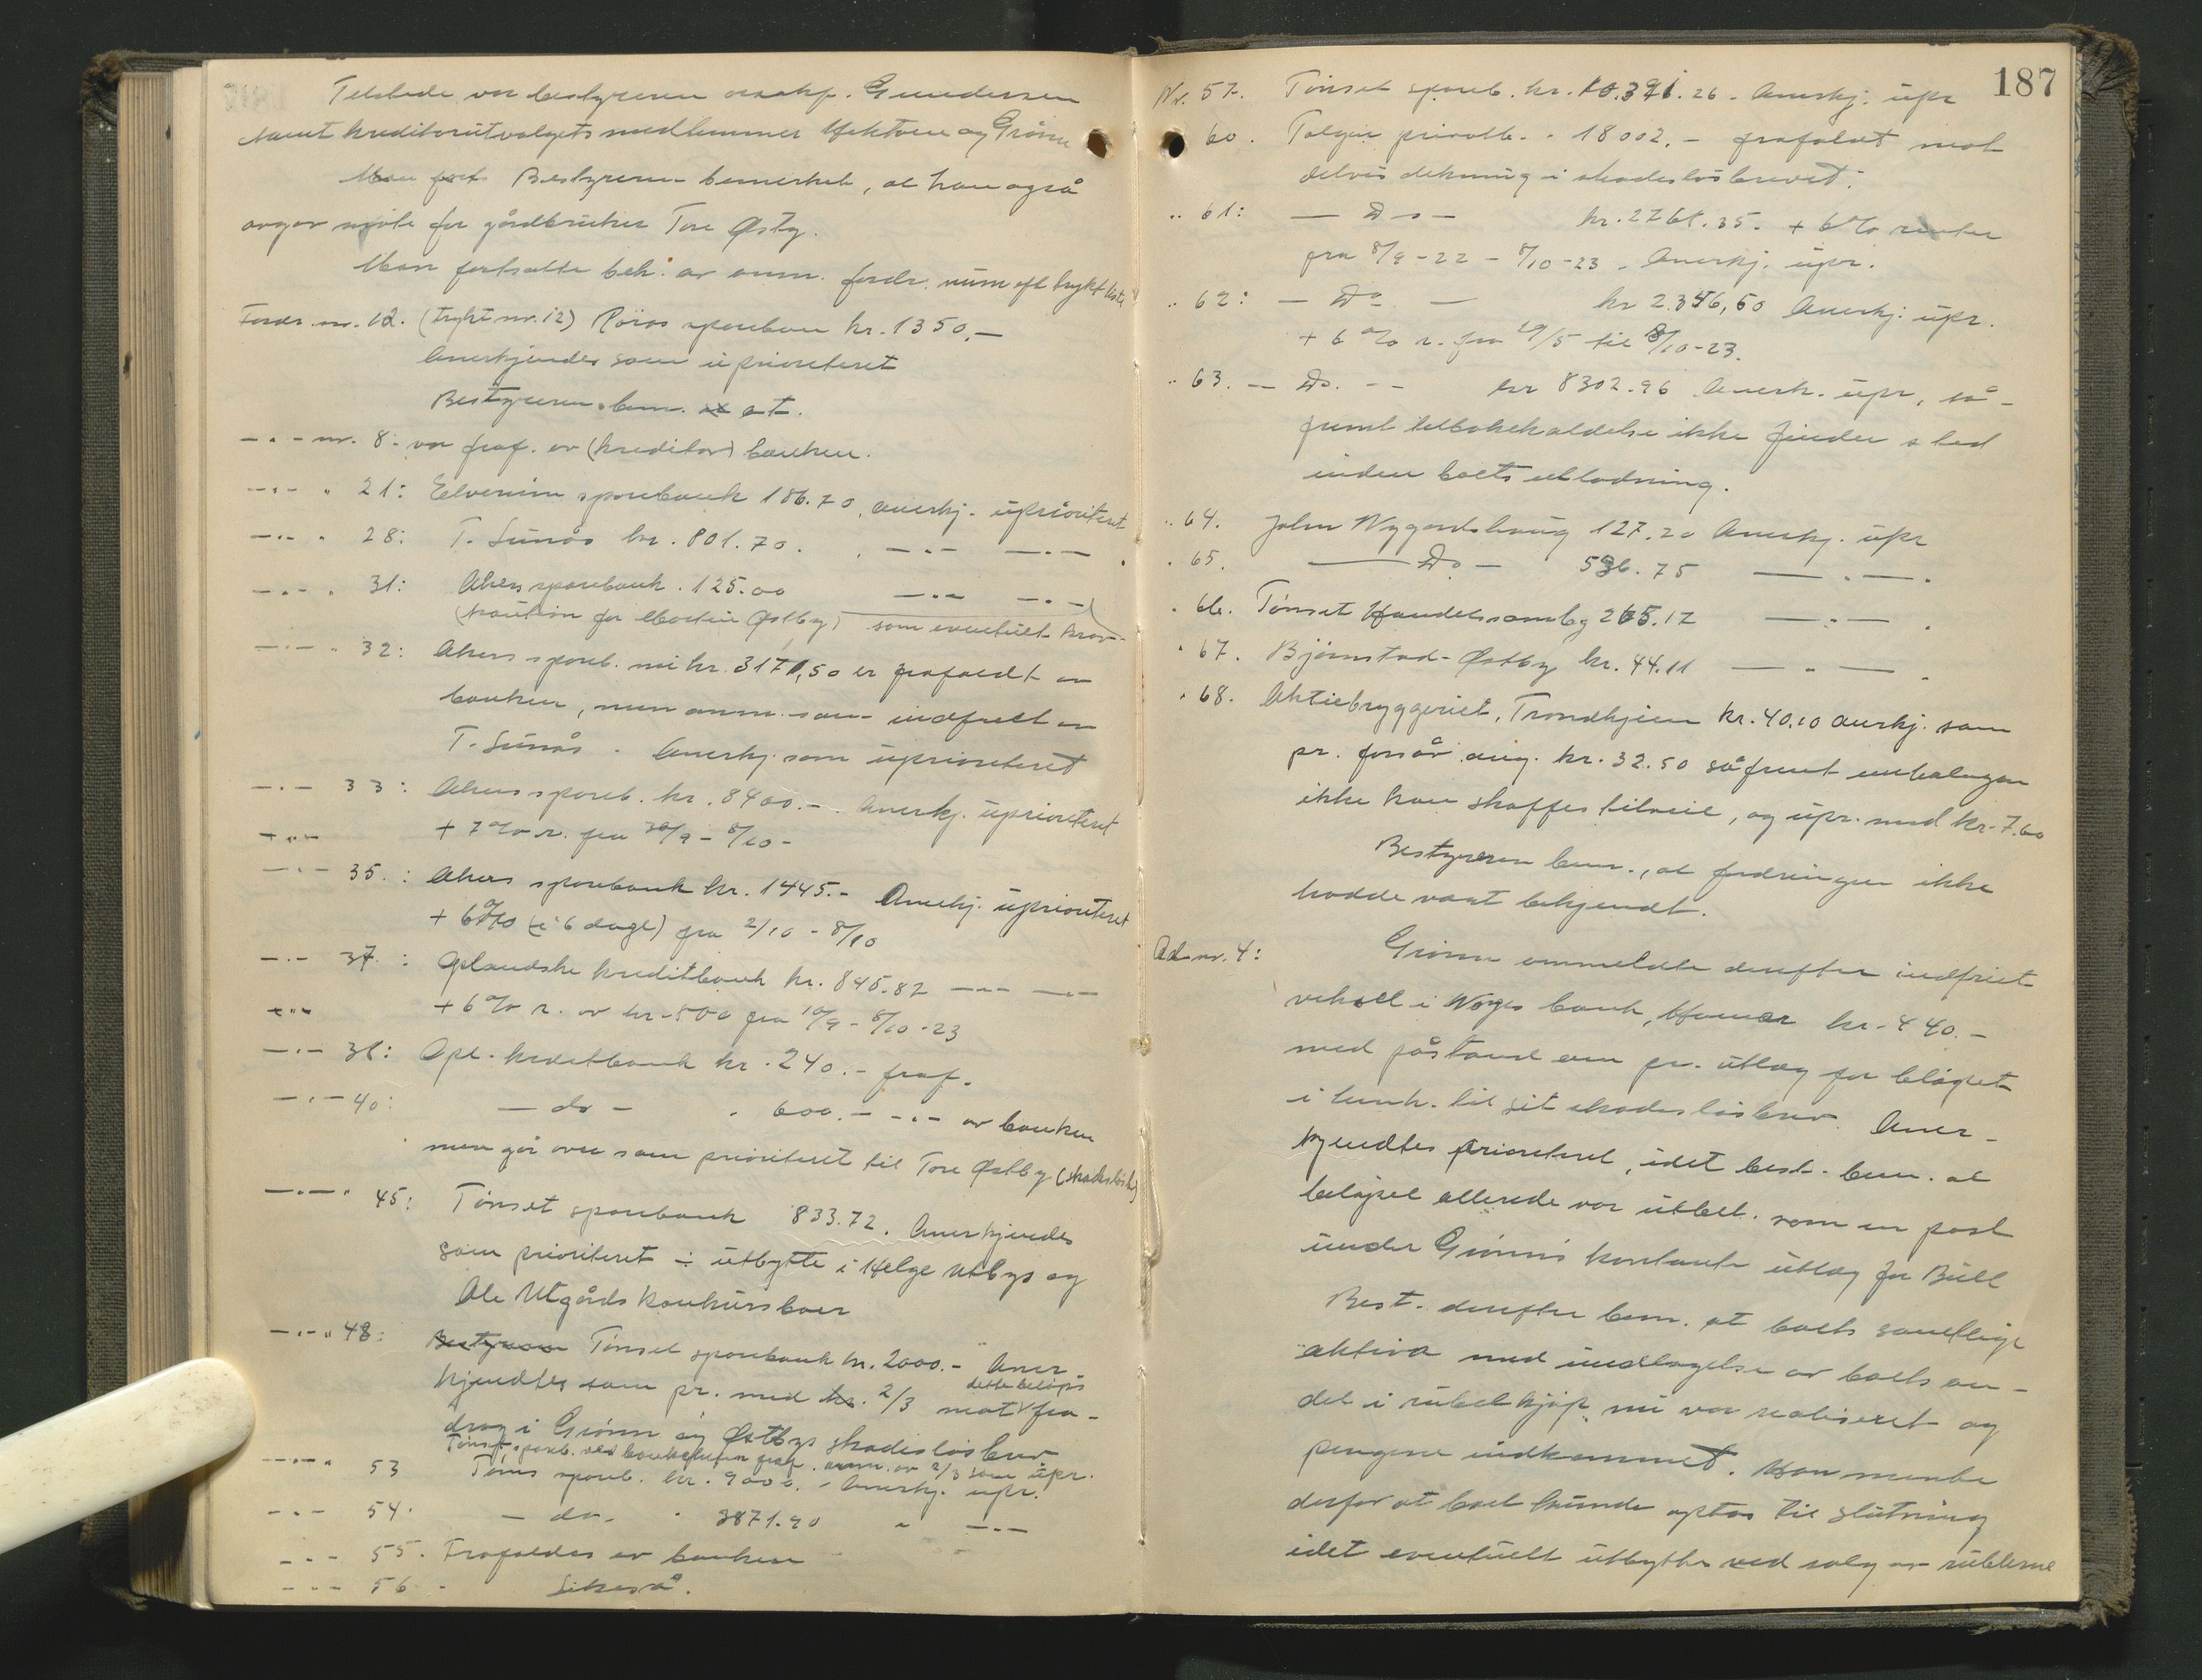 Tilstede var bestyreren oraakf. Gundersen
samt kreditorutvalgets medlemmer Hektoen og Grönn
Bestyreren bemerket, at han også
avgav møte for gårdbruker Tore Østby.
Man fortsatte beh. av anm. fordr. num eft trykt liste
Fordr. nr. 12. (trykt nr. 12) Röros sparebank kr. 1350.-
Anerkjendes som upriorteret
Bestyreren bem. at.
-"- nr. 8. var fraf. av (kreditor) banken.
-"- " 21: Elverum sparebank 186.70, anerkj. uprioriteret
-"- " 28: T. Sunås kr. 801.70. -"- -"-
-"- " 31: Akers sparebank. 125.00 -"- -"-
(kaution for Martin Østby) som eventuelt krav
-"- " 32: Akers spareb. nu kr. 3171,50 er frafaldt av
banken, men anm. som indfriet av
T. Sunås. Anerkj. som uprioriteret
-"- 33: Akers spareb. kr. 8400.- Anerkj. uprioriteret
-"- + 7% r. fra 30/9 - 8/10 -
-"- 35.: Akers sparebank kr. 1445.- Anerkj. uprioriteret
+ 6% (i 6 dage) fra 2/10 - 8/10
-"- 37: Oplandske kreditbank kr. 845.82 -"- -"-
-"- + 6% r. av kr. 800 fra 10/9 - 8/10 -23
-"- 38: Opl. kreditbank kr. 240.- fraf.
-"- 40: - do - " 600.- -"- av banken
men går over som prioriteret til Tore Østby
-"- " 45: Tönset sparebank 833.72. Anerkjendes
som prioriteret ÷ utbytte i Helge Utbys og
Ole Utgårds konkursboer
-"- " 48: Bestyreren Tönset sparebank kr. 2000.- Aner
kjendtes som pr. med kr. 2/3 mot dette beløps fra-
drag i Grönn og Østbys skadeslösbrev
Tönset spareb. ved fraf. anm. av 2/3 som upr.
-"- " 53 Töns spareb. kr. 9000.- Anerkj. upr.
-"- 54. - do. " 3871.90 " -"-
-"- 55. Frafaldes av banken
-"- 56 - Likeså.
187
Nr. 57. Tönset spareb. kr. 10.391.26 - Anerkj. upr
" 60. Tolgen privatb. " 18002.- frafaldt mot
delvis dekning i skadeslösbrevet.
" 61: - Do - kr. 2768.35. + 6% renter
fra 8/9 -22 - 8/10 -23. Anerkj. upr.
" 62: - Do - kr 2.346,50 Anerkj. upr.
+ 6% r. fra 29/5 til 8/10-23.
" 63. - Do. - - kr 8302.96 Anerk. upr, så-
fremt tilbakekaldelse ikke finder sted
inden boets utlodning.
" 64. John Nygardshaug 127.20 Anerkj. upr
" 65. - Do - 536.75 - " -
" 66. Tönset Handelssamlg 265.17 - " -
" 67. Björnstad-Østby kr. 44.11 - " -
" 68. Aktiebryggeriet, Trondhjem kr. 40.10 anerkj. som
pr. forsåv. ang. kr. 32.50 såfremt embalagen
ikke kan skaffes tilveie, og upr. med kr. 7.60
Bestyreren bem., at fordringen ikke
hadde vært bekjendt.
Ad nr. 4: Grönn anmeldte derefter indfriet
veksel i Norges bank, Hamar kr. 440.-
med påstand om pr. utlæg for beløpet
i henh. til sit skadeslösbrev. Aner-
kjendtes prioriteret, idet best. bem. at
beløpet allerede var utbet. som en post
under Grönns kontante utlæg for Bull
Best. derefter bem. at boets samtlige
aktiva med undtagelse av boets an-
del i rubelkjøp nu var realiseret og
pengene indkommet. Han mente
derfor at boet kunde optas til slutning
idet eventuelt utbytte ved salg av rublerne